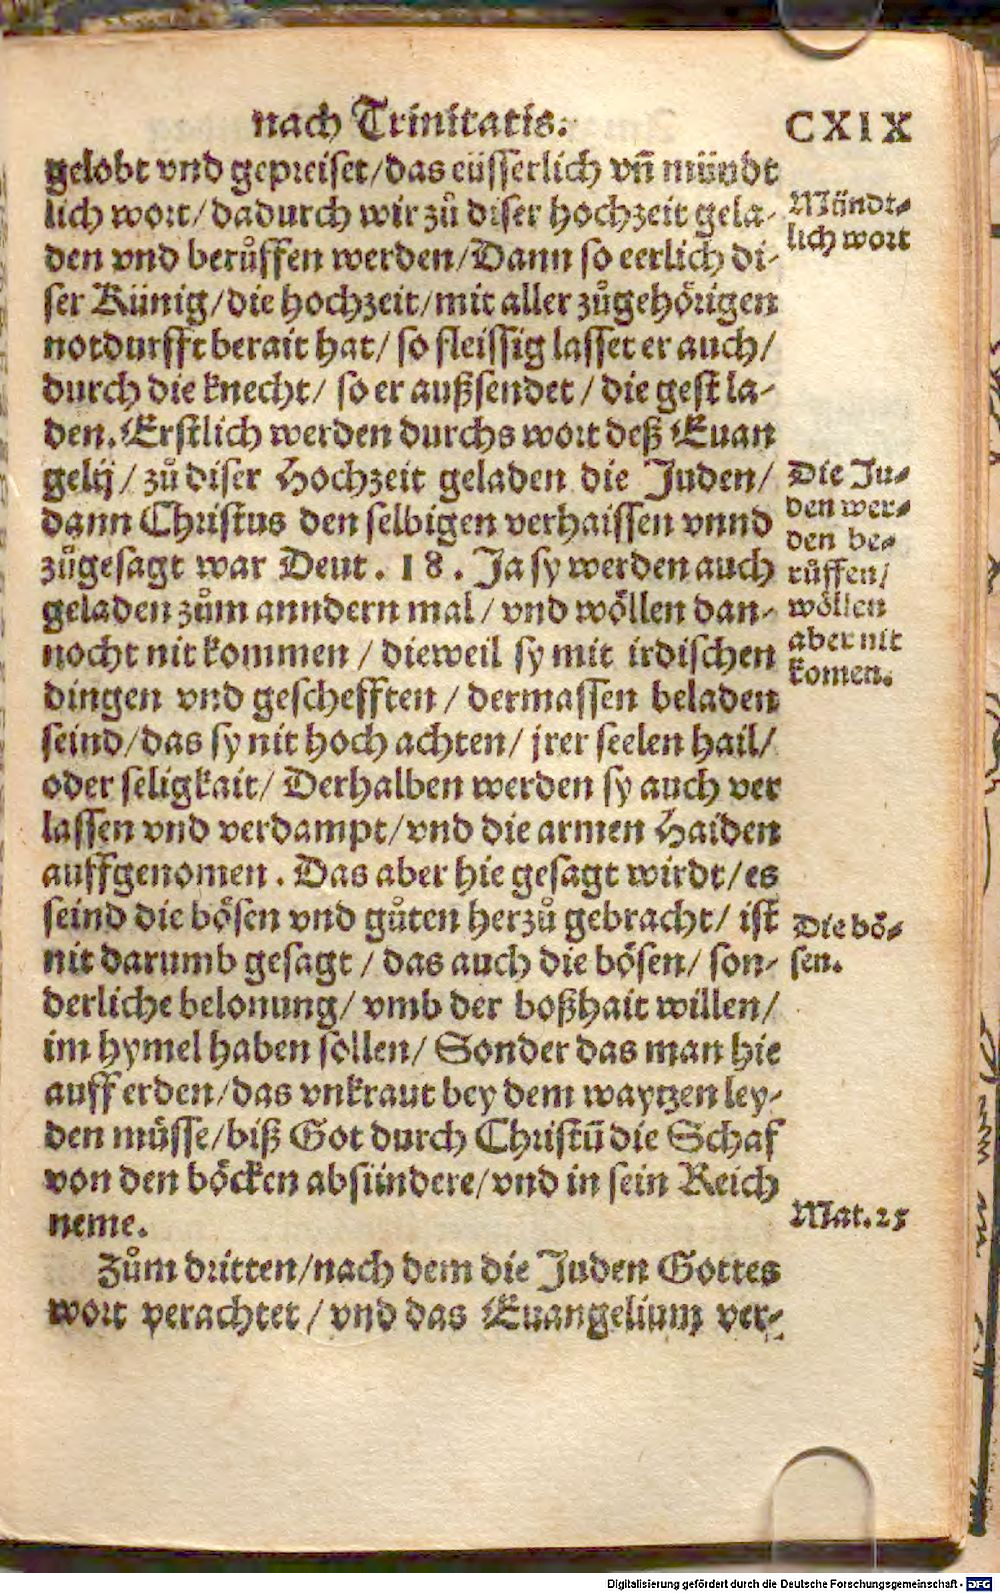 nach Trinitatis.
CXIX
gelobt vnd gepreiset/das eüsserlich vn̄ mündt
lich wort/dadurch wir zů diser hochzeit gela-
den vnd berůffen werden/Dann so eerlich di-
ser Künig/die hochzeit/mit aller zůgehörigen
notdurfft berait hat/ so fleissig lasset er auch/
durch die knecht/ so er außsendet / die gest la-
den. Erstlich werden durchs wort deß Euan
gelij / zů diser Hochzeit geladen die Juden/
dann Christus den selbigen verhaissen vnnd
zůgesagt war Deut. 18. Ja sy werden auch
geladen zům anndern mal / vnd wöllen dan-
nocht nit kommen / dieweil sy mit irdischen
dingen vnd geschefften / dermassen beladen
seind/das sy nit hoch achten/ jrer seelen hail/
oder seligkait/ Derhalben werden sy auch ver
lassen vnd verdampt/vnd die armen Haiden
auffgenomen. Das aber hie gesagt wirdt/es
seind die bösen vnd gůten herzů gebracht/ ist
nit darumb gesagt / das auch die bösen/ son-
derliche belonung/ vmb der boßhait willen/
im hymel haben sollen/ Sonder das man hie
auff erden/das vnkraut bey dem waytzen ley-
den müsse/biß Got durch Christū die Schaf
von den böcken absündere/vnd in sein Reich
neme.
Zům dritten/nach dem die Juden Gottes
wort verachtet / vnd das Euangelium ver-
Mündt-
lich wort
Die Ju-
den wer-
den be-
růffen/
wöllen
aber nit
komen.
Die bö-
sen.
Mat. 25
Digitalisierung gefördert durch die Deutsche Forschungsgemeinschaft - DFG